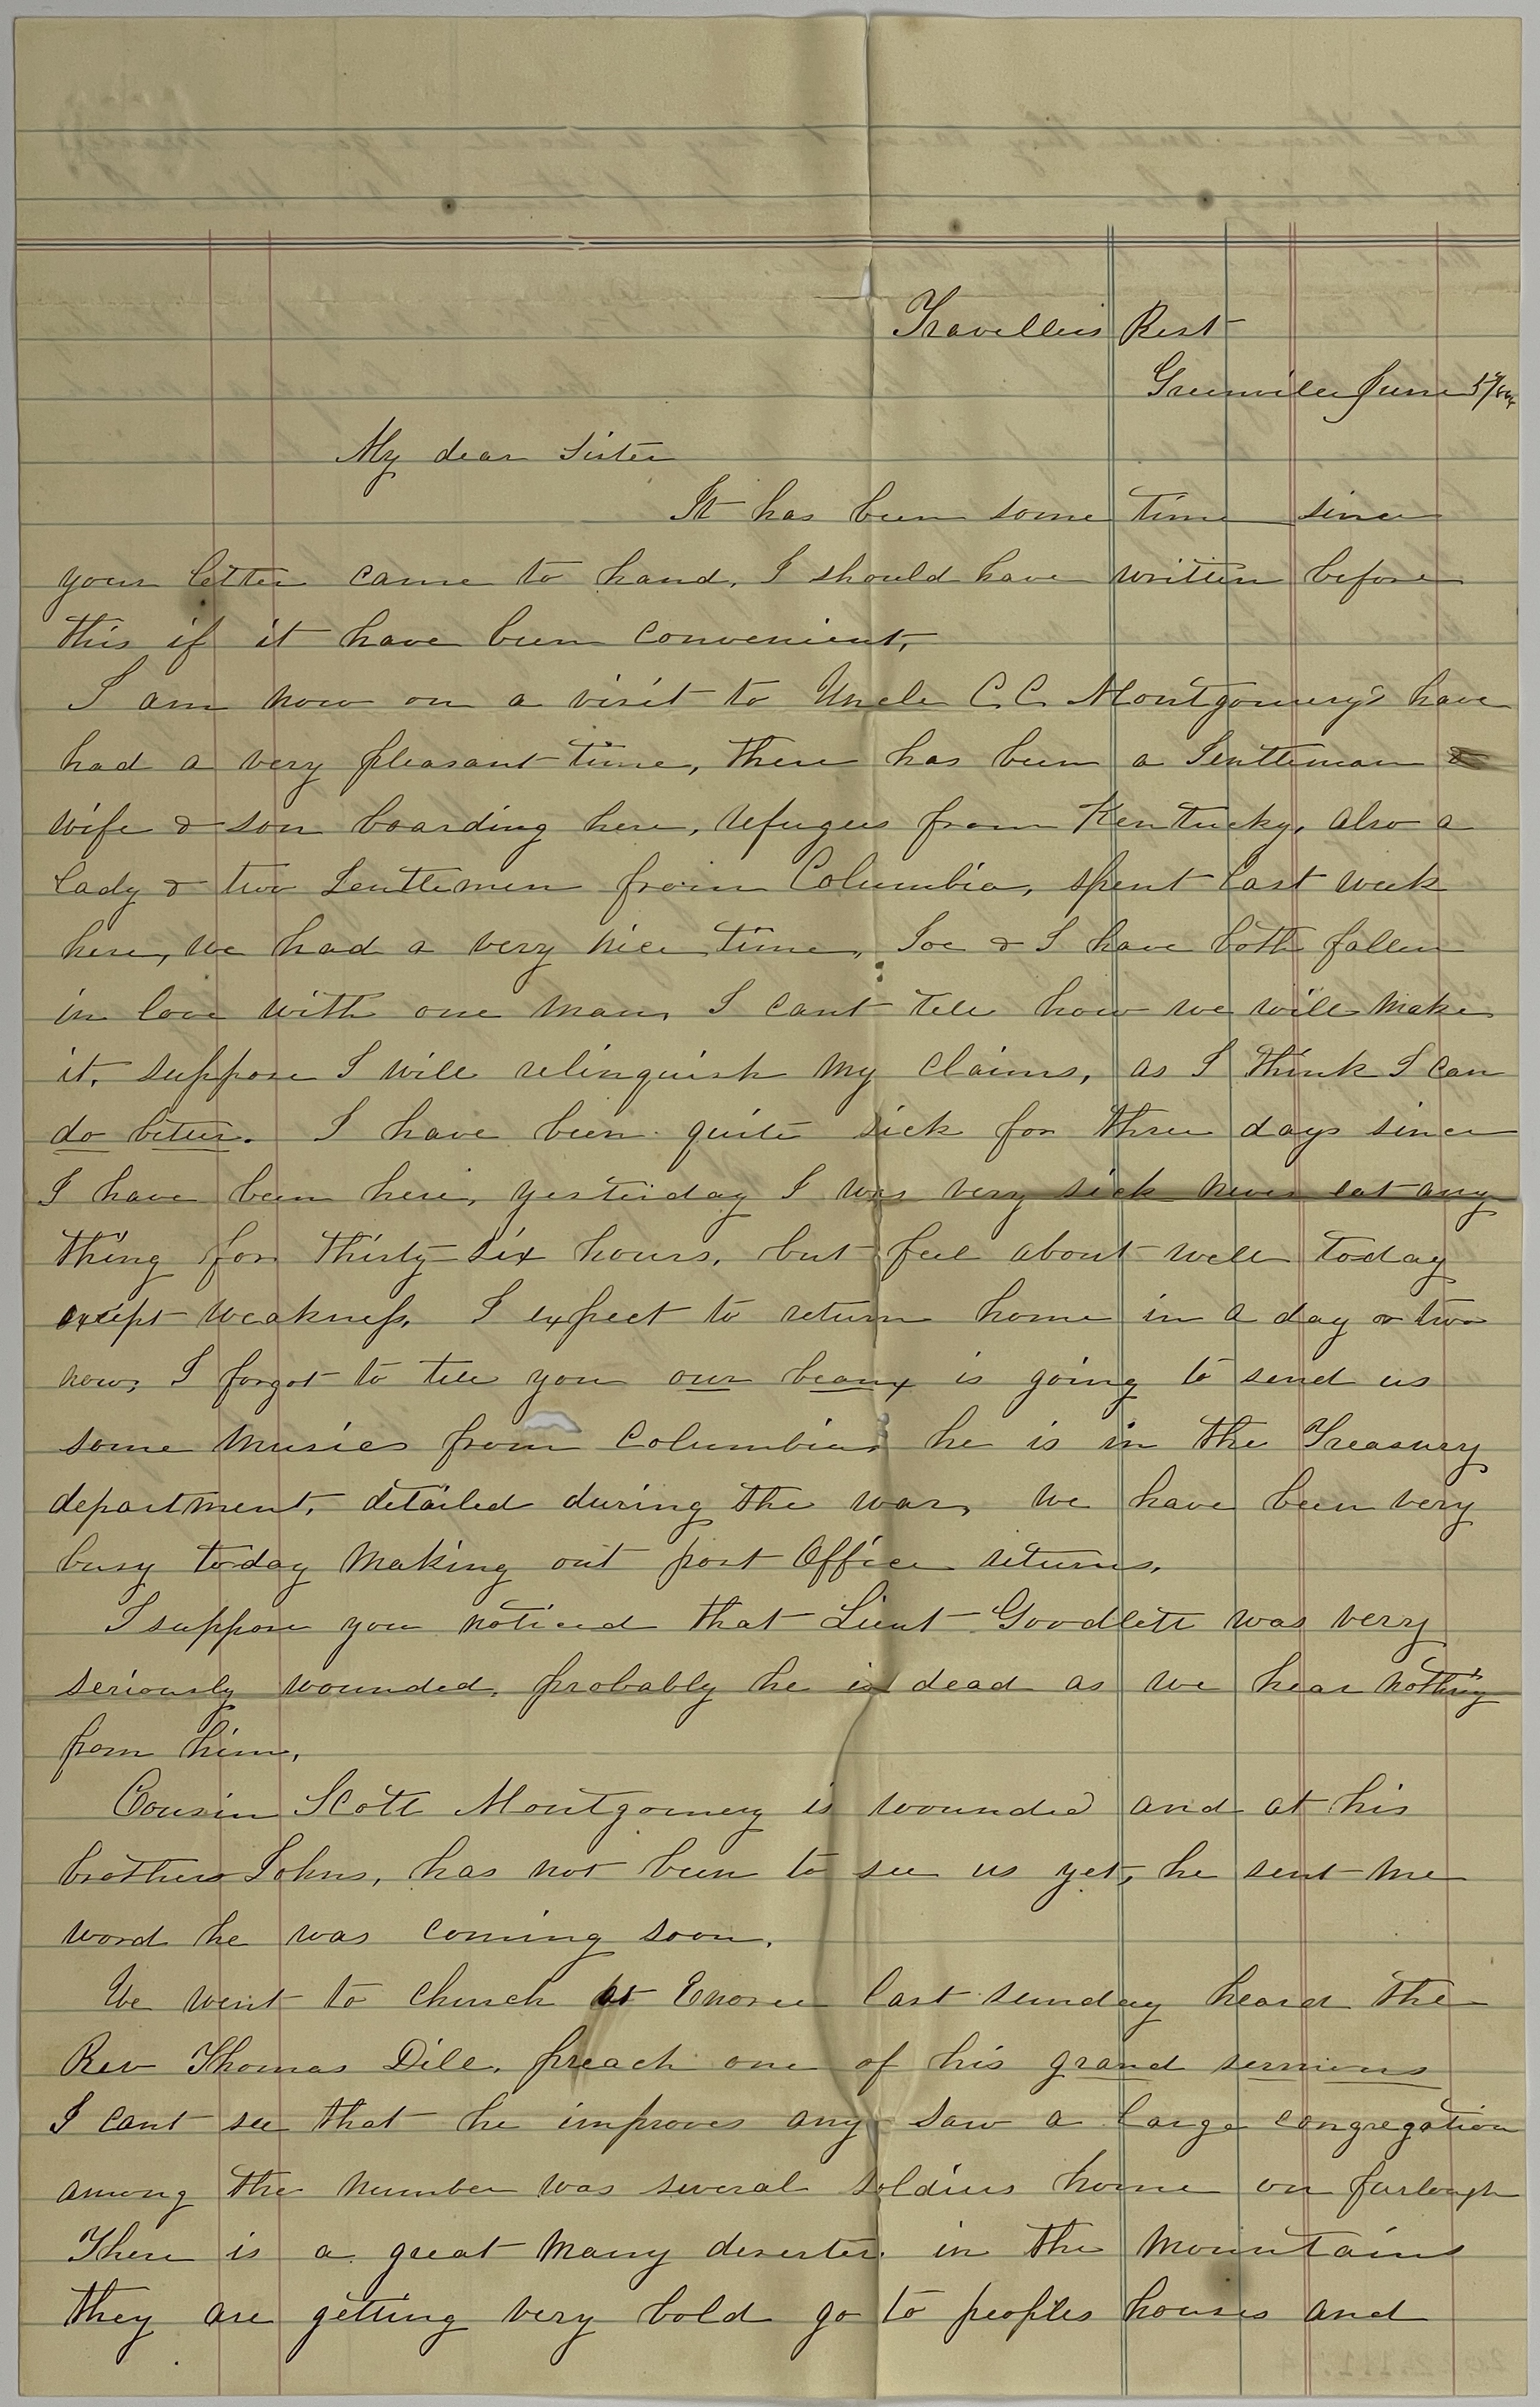 Travellers Rest
Greenville June 5th/64
My dear Sister
It has been some time since
your letter came to hand, I should have written before
this if it have been convenient,
I am now on a visit to Uncle C.C. Montgomery's have
had a very pleasant time, there has been a Gentleman &
wife & son boarding here, refugees from Kentucky, also a
lady & two Gentlemen from Columbia, spent last week
here, we had a very nice time, Joe & I have both fallen
in love with one man, I cant tell how we will make
it, suppose I will relinquish my claims, as I think I can
do better. I have been quite sick for three days since
I have been here, yesterday I was very sick never eat any
thing for thirty-six hours, but feel about well today
except weakness, I expect to return home in a day or two
now, I forgot to tell you our beaux is going to send us
some music from Columbia, he is in the Treasury
department, detailed during the war, we have been very
busy today making out post Office returns,
I suppose you noticed that Lieut Goodlett was very
seriously wounded, probably he is dead as we hear nothing
from him,
Cousin Scott Montgomery is wounded and at his
brothers Johns, has not been to see us yet, he sent me
word he was coming soon,
We went to church at Enoree last sunday heard the
Rev Thomas Dill, preach one of his grand sermons
I cant see that he improves any saw a large congregation
among the number was several soldiers home on furlough
There is a great many deserters in the mountains
they are getting very bold go to peoples houses and